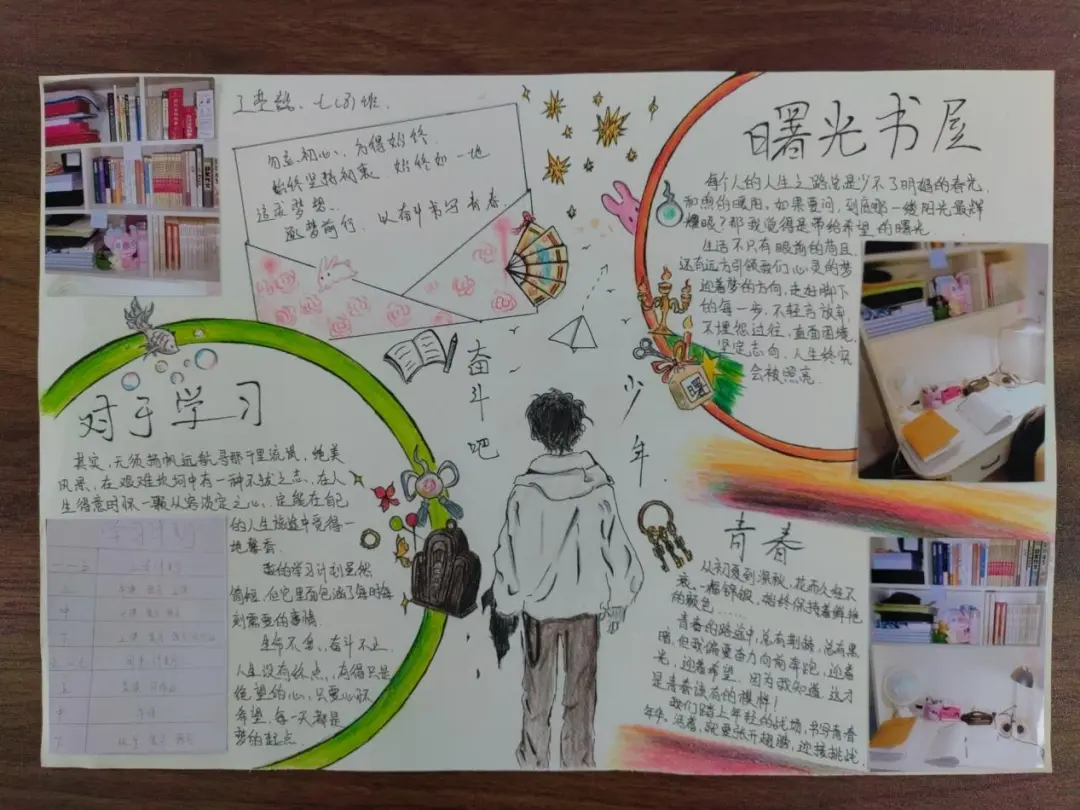 七(8)班
勿忘初心,方得始终.
始终坚持初衷 始终如一地
追逐梦想.
逐梦前行. 以奋斗书写青春.
曙光书屋
每个人的人生之路总是少不了明媚的春光,
和煦的暖阳,如果要问,到底哪一缕阳光最辉
耀眼?那我觉得是带给希望的曙光
生活不只有眼前的苟且
还有远方引领我们心灵的梦
迎着梦的方向,走好脚下
的每一步,不轻言放弃,
不埋怨过往,直面困境,
坚定志向,人生终究
会被照亮.
曙
奋斗吧
少年.
对于学习
其实,无须扬帆远航寻那千里流岚,绝美
风景,在艰难坎坷中有一种不拔之志,在人
生得意时怀一颗从容淡定之心,定能在自己
的人生旅途中觅得一
地馨香.
我的学习计划虽然
简短,但它里面包涵了每时每
刻需要的事情.
生命不息,奋斗不止.
人生没有终点,有得只是
绝望的心,只要心怀
希望,每一天都是
梦的起点.
学习计划
青春
从初夏到深秋,花而久经不
衰,一树锦缎,始终保持着鲜艳
的颜色……
青春的路途中,总有荆棘,总有黑
暗,但我偏要奋力向前奔跑,迎着
光,迎着希望.因为我知道,这才
是青春该有的模样!
我们踏上年轻的战场,书写青春
年华,活着,就要张开翅膀,迎接挑战